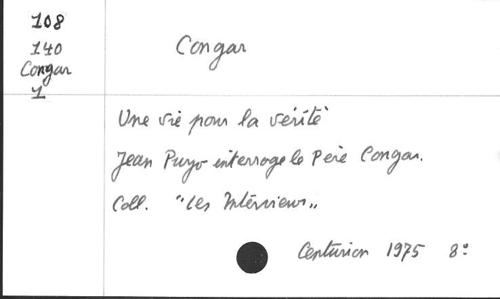 108
140
Congar
1
Congar
Une vie pour la vérité
Jean Puyo interroge le Père Congar.
Coll. "Les Interviews"
Centurion 1975 8°